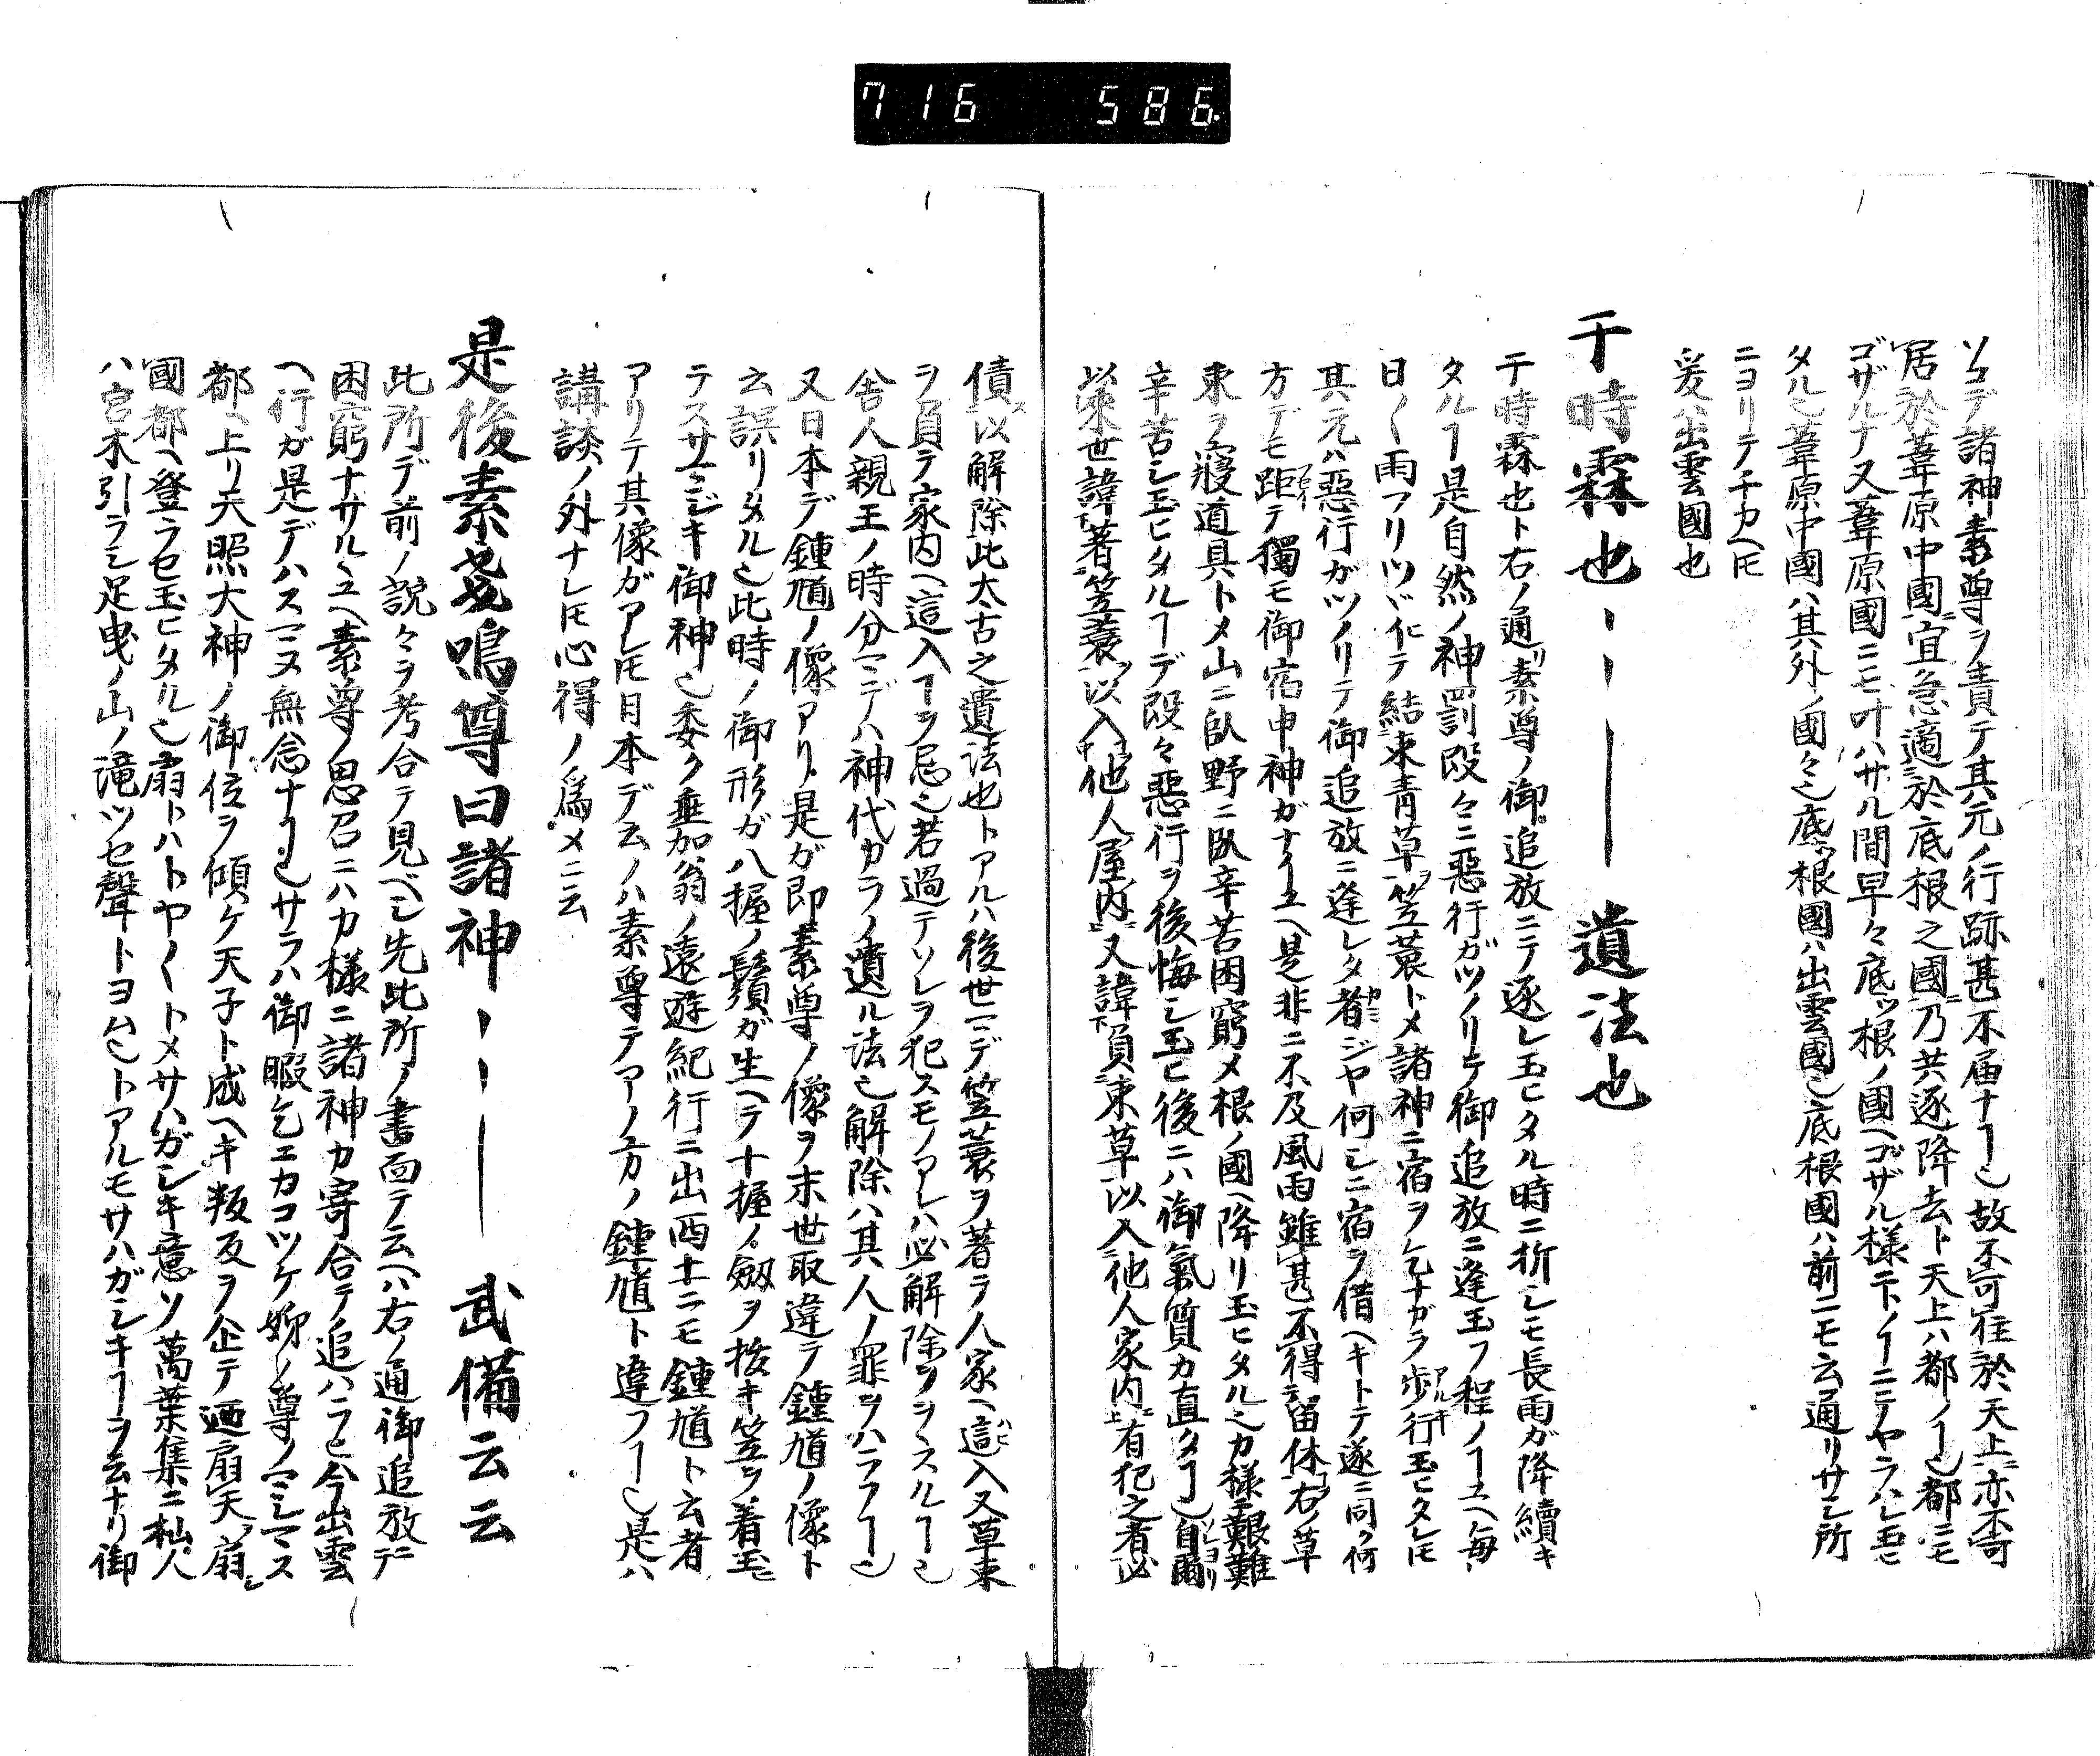 716 586.
ソコデ諸神素尊ヲ責テ其元ノ行跡甚不届ナヿ也故不可住於天上亦不可
居於葦原中國宜急適於底根之國乃共逐降去ト天上ハ都ノヿ也都ニモ
ゴザルナ又葦原國ニモ叶ハサル間早々底ツ根ノ國ヘゴザル様ニトノヿニテヤラハレ玉ヒ
タル也葦原中國ハ其外ノ國々也底ツ根國ハ出雲國也底根國ハ前ニモ云通リサシ所
ニヨリテチカヘ𪜈
爰ハ出雲國也
于時霖也、、、― 遺法也
于時霖也ト右ノ通リ素尊ノ御追放ニテ逐レ玉ヒタル時ニ折シモ長雨ガ降續キ
タルヿ是自然ノ神罰段々ニ惡行ガツノリテ御追放ニ逢玉フ程ノヿユヘ毎
日〳〵雨フリツヾイテ結束青草笠蓑トメ諸神ニ宿ヲ乞ナガラ歩行玉ヒタレ𪜈
其元ハ惡行ガツノリテ御追放ニ逢レタ者ジヤ何シニ宿ヲ借ヘキトテ遂ニ同ク何
方デモ距テ獨モ御宿申神ガナイユヘ是非ニ不及風雨雖甚不得留休右ノ草
束ヲ寢道具トメ山ニ臥野ニ臥辛苦困窮メ根ノ國ヘ降リ玉ヒタル也カ様ニ艱難
辛苦シ玉ヒタルヿデ段々惡行ヲ後悔シ玉ヒ後ニハ御氣質カ直タヿ也自爾ソレヨリ
以來世諱著笠蓑以入他人屋内又諱負束草以入他人家内有犯之者必
債ス以解除此太古之遺法也トアルハ後世マデ笠蓑ヲ著テ人家ヘ這入又草束
ヲ負テ家内ヘ這入ヿヲ忌也若過テソレヲ犯スモノアレハ必解除ヲヲスルヿ也
舎人親王ノ時分マデハ神代カラノ遺ル法也解除ハ其人ノ罪ヲハラフヿ也
又日本デ鍾馗ノ像アリ是ガ即素尊ノ像ヲ末世取違テ鍾馗ノ像ト
云誤リタル也此時ノ御形ガ八握ノ鬚ガ生ヘテ十握ノ劔ヲ拔キ笠ヲ着玉ヒ
テスサマジキ御神也委ク垂加翁ノ遠遊紀行ニ出西土ニモ鍾馗ト云者
アリテ其像ガアレ𪜈日本デ云ノハ素尊テアノ方ノ鍾馗ト違フヿ也是ハ
講談ノ外ナレ𪜈心得ノ爲メニ云
是後素戔嗚尊曰諸神、、― 武備云云
此所デ前ノ説々ヲ考合テ見ベシ先此所ノ書面テ云ヘハ右ノ通御追放ニテ
困窮ナサルヽユヘ素尊ノ思召ニハカ様ニ諸神カ寄合テ追ハラヒ今出雲
ヘ行ガ是デハスマヌ無念ナヿ也サラハ御暇乞ニカコツケ姉ノ尊ノマシマス
都ヘ上リ天照大神ノ御位ヲ傾ケ天子ト成ヘキ叛反ヲ企テ廼扇天扇
國都ヘ登ラセ玉ヒタル也扇トハトヤ〳〵トメサハガシキ意ソ萬葉集ニ杣人
ハ宮木引ラシ足曳ノ山ノ滝ツセ聲トヨム也トアルモサハガシキヿヲ云ナリ御